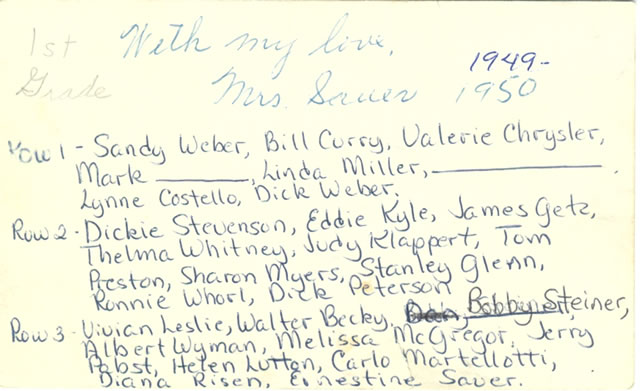 1st
Grade
With my love,
Mrs. Sauer
1949-
1950
Row 1 - Sandy Weber, Bill Curry, Valerie Chrysler,
Mark ______, Linda Miller, ____________.
Lynne Costello, Dick Weber.
Row 2 - Dickie Stevenson, Eddie Kyle, James Getz,
Thelma Whitney, Judy Klappert, Tom
Preston, Sharon Myers, Stanley Glenn,
Ronnie Whorl, Dick Peterson
Row 3 - Vivian Leslie, Walter Becky, Bobby Steiner,
Albert Wyman, Melissa McGregor, Jerry
Pabst, Helen Lutton, Carlo Martellotti,
Diana Risen, Ernestine Sauer.